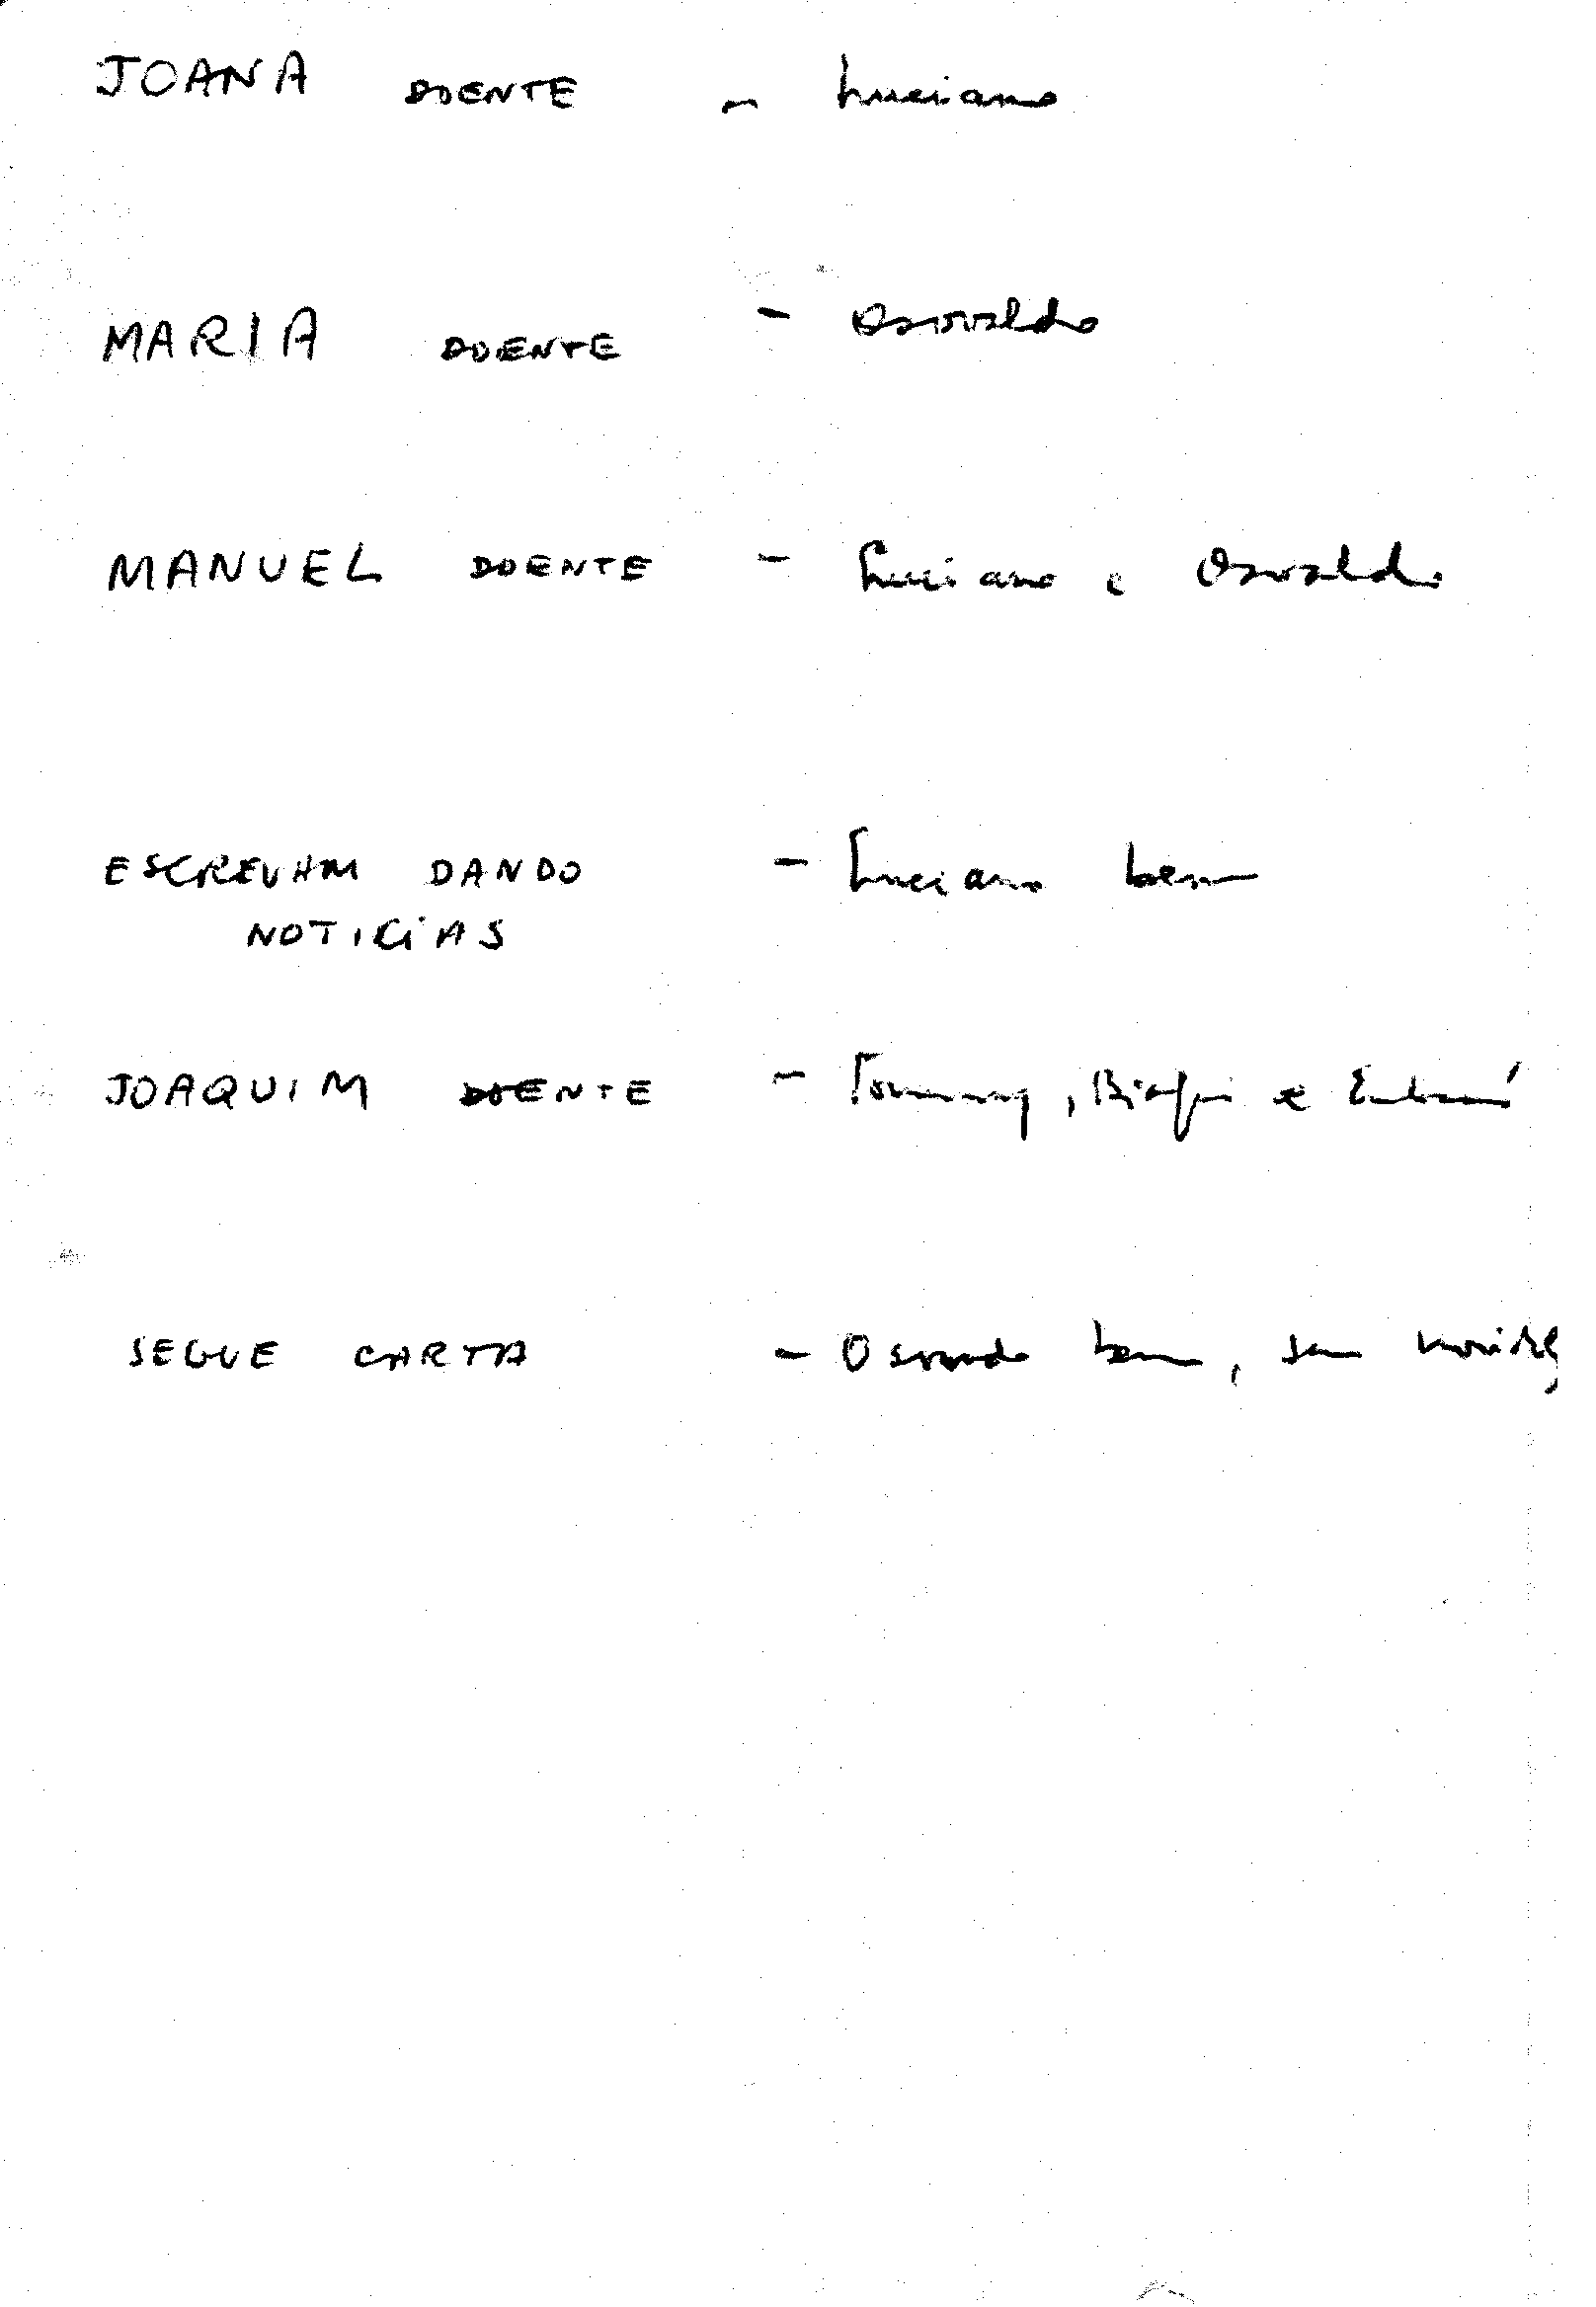 JOANA DOENTE - Luciano
MARIA DOENTE - Osvaldo
MANUEL DOENTE - Luciano e Osvaldo
ESCREVAM DANDO - Luciano bem
NOTICIAS
JOAQUIM DOENTE - Tommy, e
SEGUE CARTA - Osvaldo bem, sem